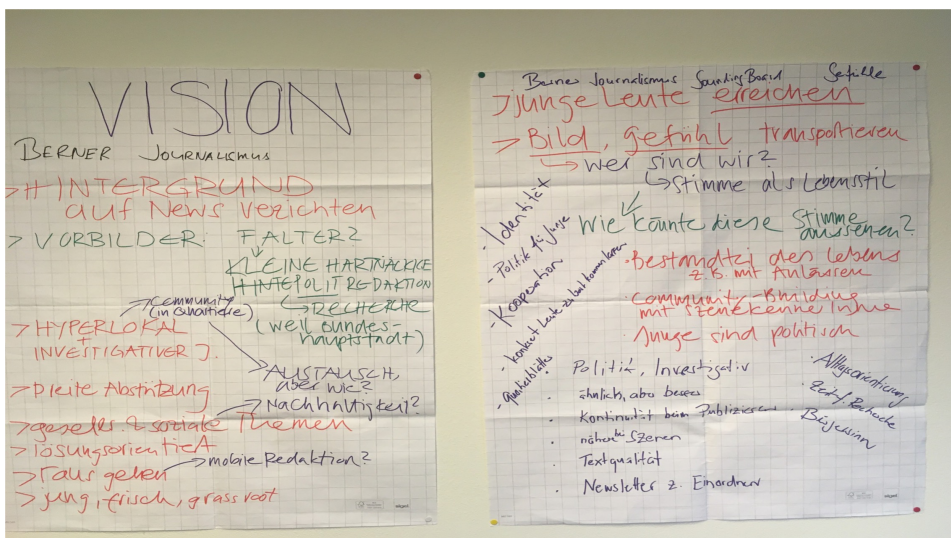 VISION
BERNER JOURNALISMUS
> HINTERGRUND
auf News verzichten
> VORBILDER: FALTER?
KLEINE HARTNÄCKIGE
POLITREDAKTION
RECHERCHE
(weil Bundes-
hauptstadt)
Community
(in Quartiere)
> HYPERLOKAL
+
INVESTIGATIVER J.
AUSTAUSCH,
aber wie?
> breite Abstützung
Nachhaltigkeit?
> gesells. & soziale Themen
> lösungsorientiert
> raus gehen
mobile Redaktion?
> jung, frisch, grassroot
Berner Journalismus Sounding Board
Gefühle
> junge Leute erreichen
> Bild, gefühl transportieren
wer sind wir?
Stimme als Lebensstil
Wie könnte diese Stimme
aussehen?
· Identität
· Politik für Junge
· Kooperation
· konkret Leute zu Wort kommen lassen
· Quartierblätter
· Bestandteil des Lebens
z.B. mit Anlässen
· Community-Building
mit SzenekennerInnen
· Junge sind politisch
Politik, Investigativ
· ähnlich, aber besser
· Kontinuität beim Publizieren
· näher bei Szenen
· Textqualität
· Newsletter z. Einordnen
· Alltagsorientierung
· Zeit f. Recherche
· Bürgersinn